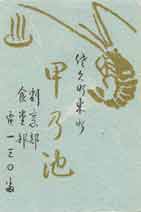 佐久町東町
甲乃池
割烹部
食堂部
電一三〇番